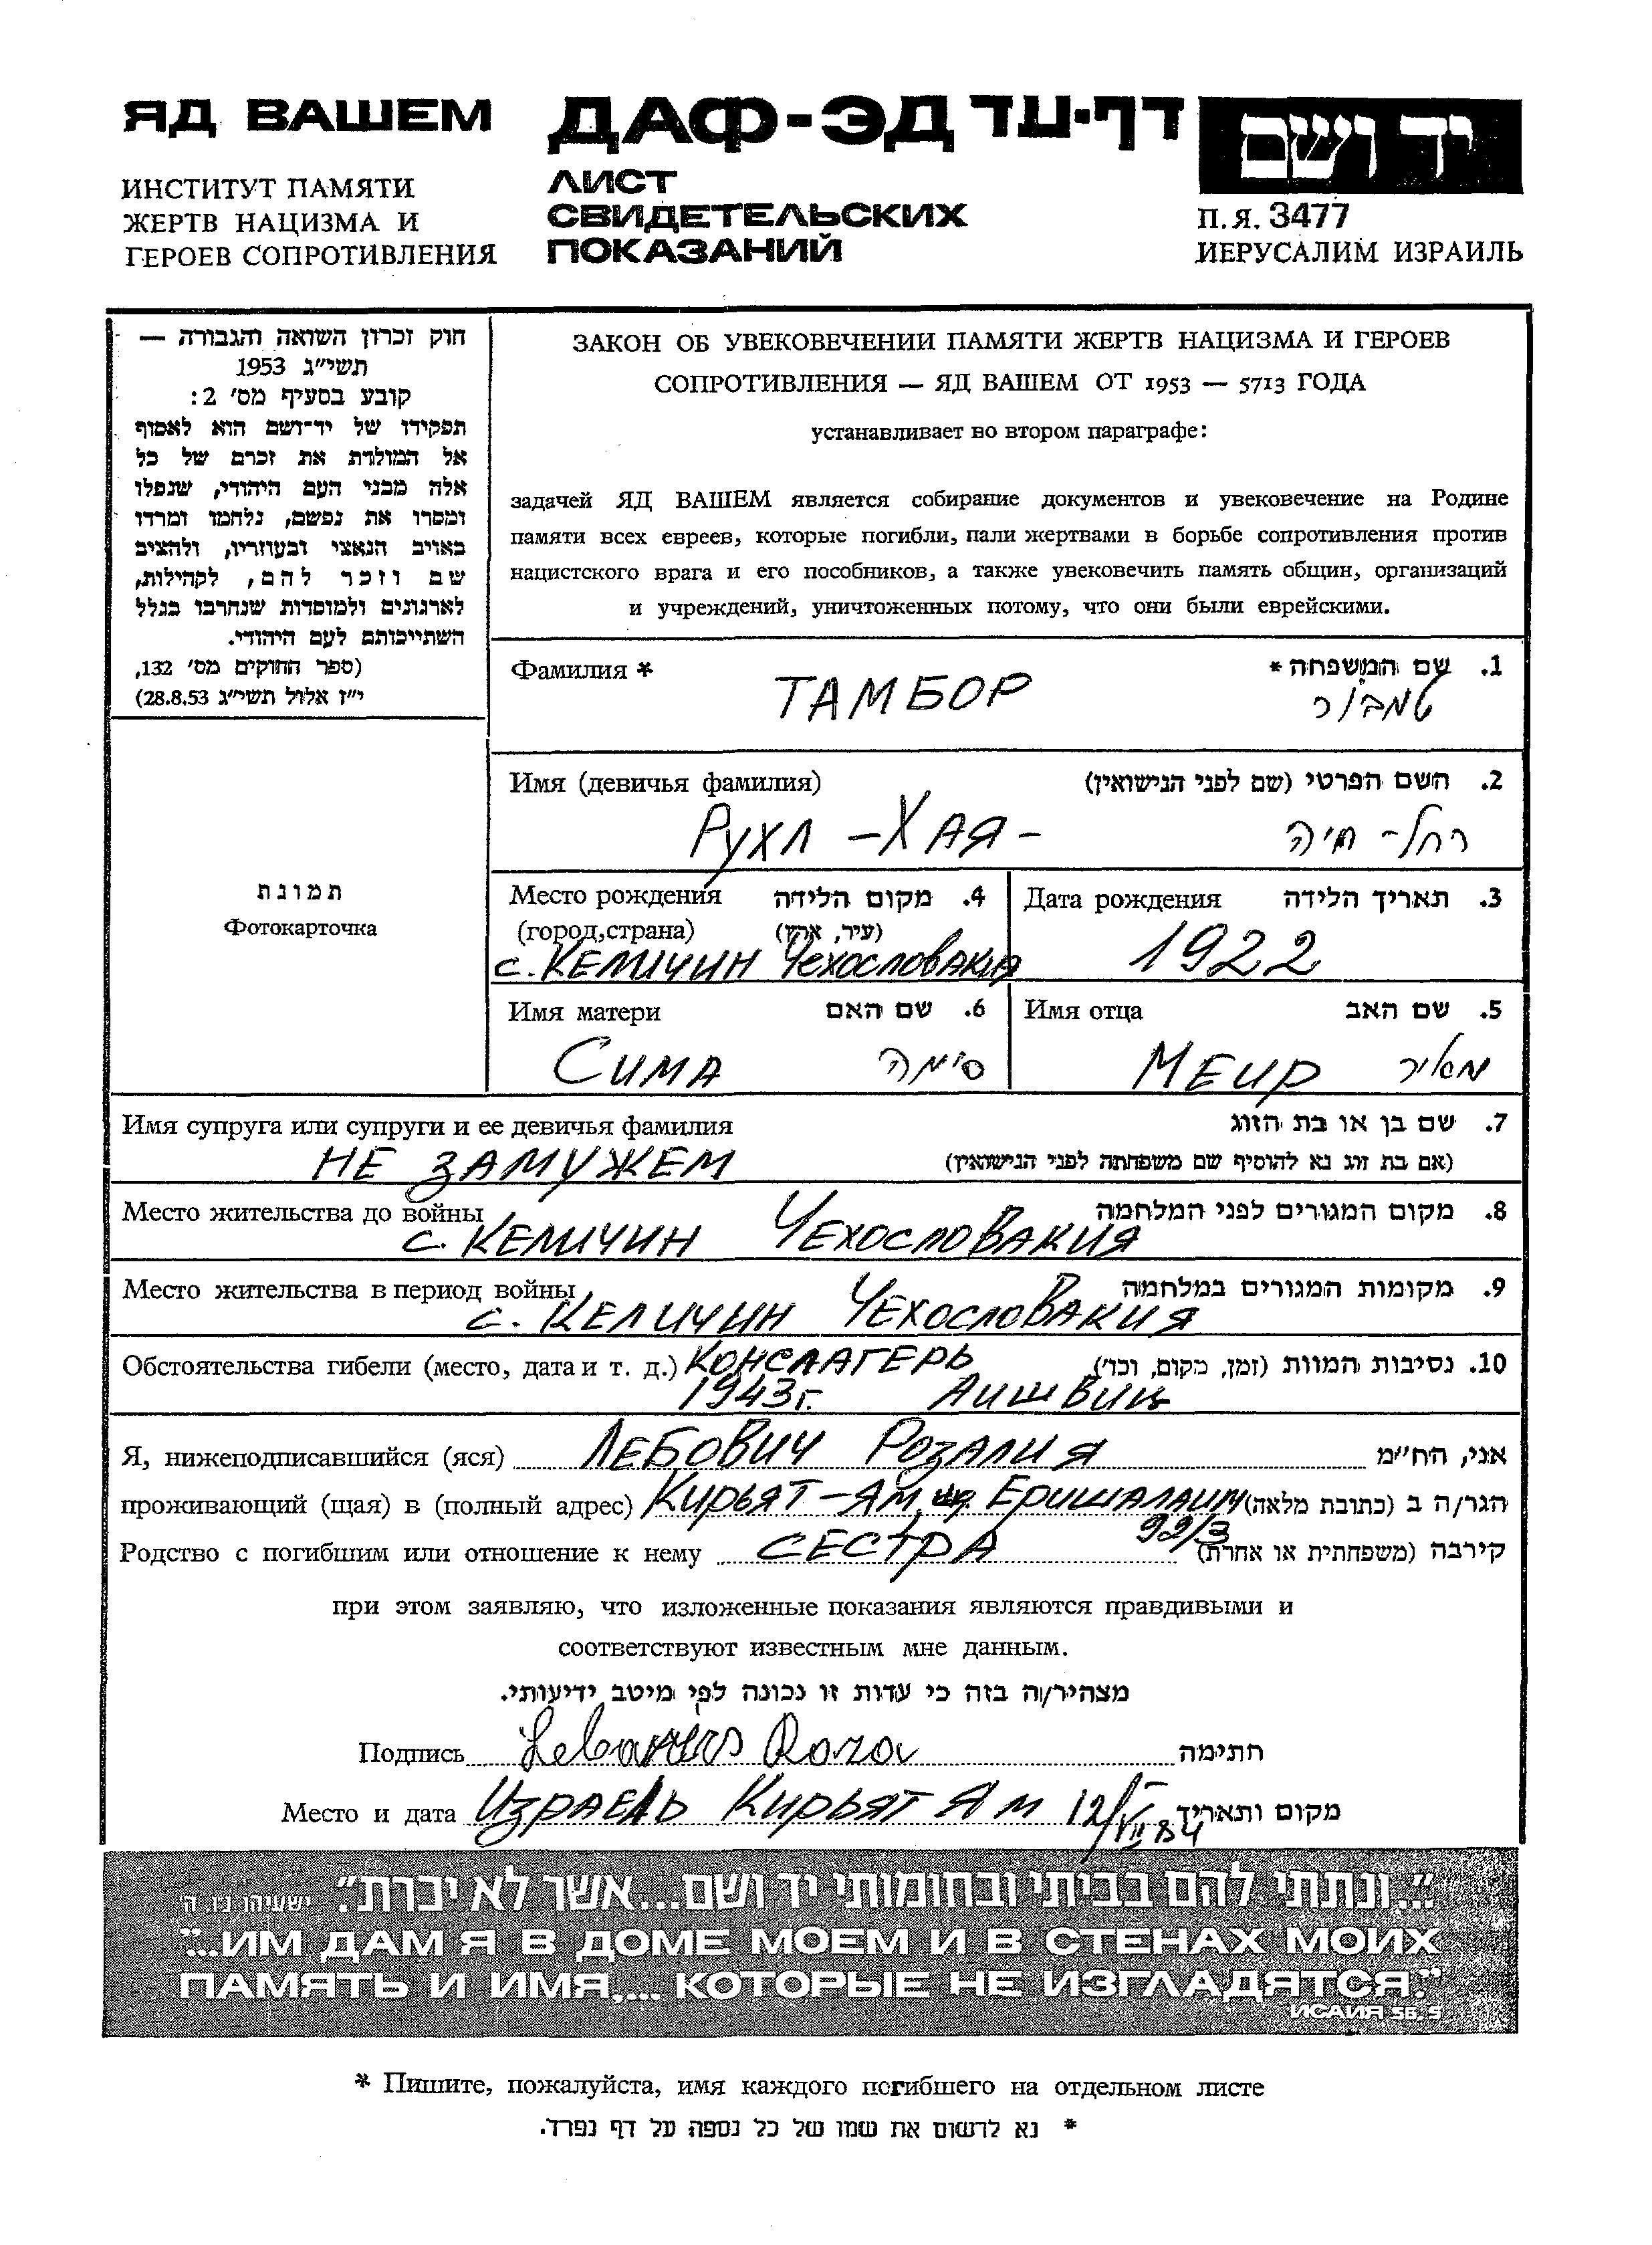 ЯД ВАШЕМ
ИНСТИТУТ ПАМЯТИ
ЖЕРТВ НАЦИЗМА И
ГЕРОЕВ СОПРОТИВЛЕНИЯ
ДАФ-ЭД דף-עד
ЛИСТ
СВИДЕТЕЛЬСКИХ
ПОКАЗАНИЙ
יד ושם
П.Я. 3477
ИЕРУСАЛИМ ИЗРАИЛЬ
חוק זכרון השואה והגבורה —
תשי״ג 1953
קובע בסעיף מס׳ 2:
תפקידו של יד־ושם הוא לאסוף
אל המולדת את זכרם של כל
אלה מבני העם היהודי, שנפלו
ומסרו את נפשם, נלחמו ומרדו
באויב הנאצי ובעוזריו, ולהציב
שם וזכר להם, לקהילות,
לארגונים ולמוסדות שנחרבו בגלל
השתייכותם לעם היהודי.
(ספר החוקים מס׳ 132,
י״ז אלול תשי״ג 28.8.53)
ЗАКОН ОБ УВЕКОВЕЧЕНИИ ПАМЯТИ ЖЕРТВ НАЦИЗМА И ГЕРОЕВ
СОПРОТИВЛЕНИЯ — ЯД ВАШЕМ ОТ 1953 — 5713 ГОДА
устанавливает во втором параграфе:
задачей ЯД ВАШЕМ является собирание документов и увековечение на Родине
памяти всех евреев, которые погибли, пали жертвами в борьбе сопротивления против
нацистского врага и его пособников, а также увековечить память общин, организаций
и учреждений, уничтоженных потому, что они были еврейскими.
Фамилия * 1. שם המשפחה *
ТАМБОР טמבור
Имя (девичья фамилия) 2. השם הפרטי (שם לפני הנישואין)
Рухл -Хая- רחל- חיה
תמונת
Фотокарточка
Место рождения 4. מקום הלידה
(город,страна) (עיר, ארץ)
с. Келичин Чехословакия
Дата рождения 3. תאריך הלידה
1922
Имя матери 6. שם האם
Сима סימה
Имя отца 5. שם האב
Меир מאיר
Имя супруга или супруги и ее девичья фамилия 7. שם בן או בת הזוג
НЕ ЗАМУЖЕМ (אם בת זוג נא להוסיף שם משפחתה לפני הנישואין)
Место жительства до войны 8. מקום המגורים לפני המלחמה
с. Келичин Чехословакия
Место жительства в период войны 9. מקומות המגורים במלחמה
с. Келичин Чехословакия
Обстоятельства гибели (место, дата и т. д.) Конслагерь 10. נסיבות המוות (זמן, מקום, וכו׳)
1943г. Аишвиц
Я, нижеподписавшийся (яся) Лебович Розалия אני, הח״מ
проживающий (щая) в (полный адрес) Кирьят-Ям, Еришалаим הגר/ה ב (כתובת מלאה)
92/3
Родство с погибшим или отношение к нему СЕСТРА קירבה (משפחתית או אחרת)
при этом заявляю, что изложенные показания являются правдивыми и
соответствуют известным мне данным.
מצהיר/ה בזה כי עדות זו נכונה לפי מיטב ידיעותי.
Подпись חתימה
Место и дата Израель Кирьят Ям 12/VII 84 מקום ותאריך
״...ונתתי להם בביתי ובחומותי יד ושם...אשר לא יכרת״. ישעיהו נ״ו, ה׳
"...ИМ ДАМ Я В ДОМЕ МОЕМ И В СТЕНАХ МОИХ
ПАМЯТЬ И ИМЯ.... КОТОРЫЕ НЕ ИЗГЛАДЯТСЯ."
ИСАИЯ 56, 5
* Пишите, пожалуйста, имя каждого погибшего на отдельном листе
* נא לרשום את שמו של כל נספה על דף נפרד.